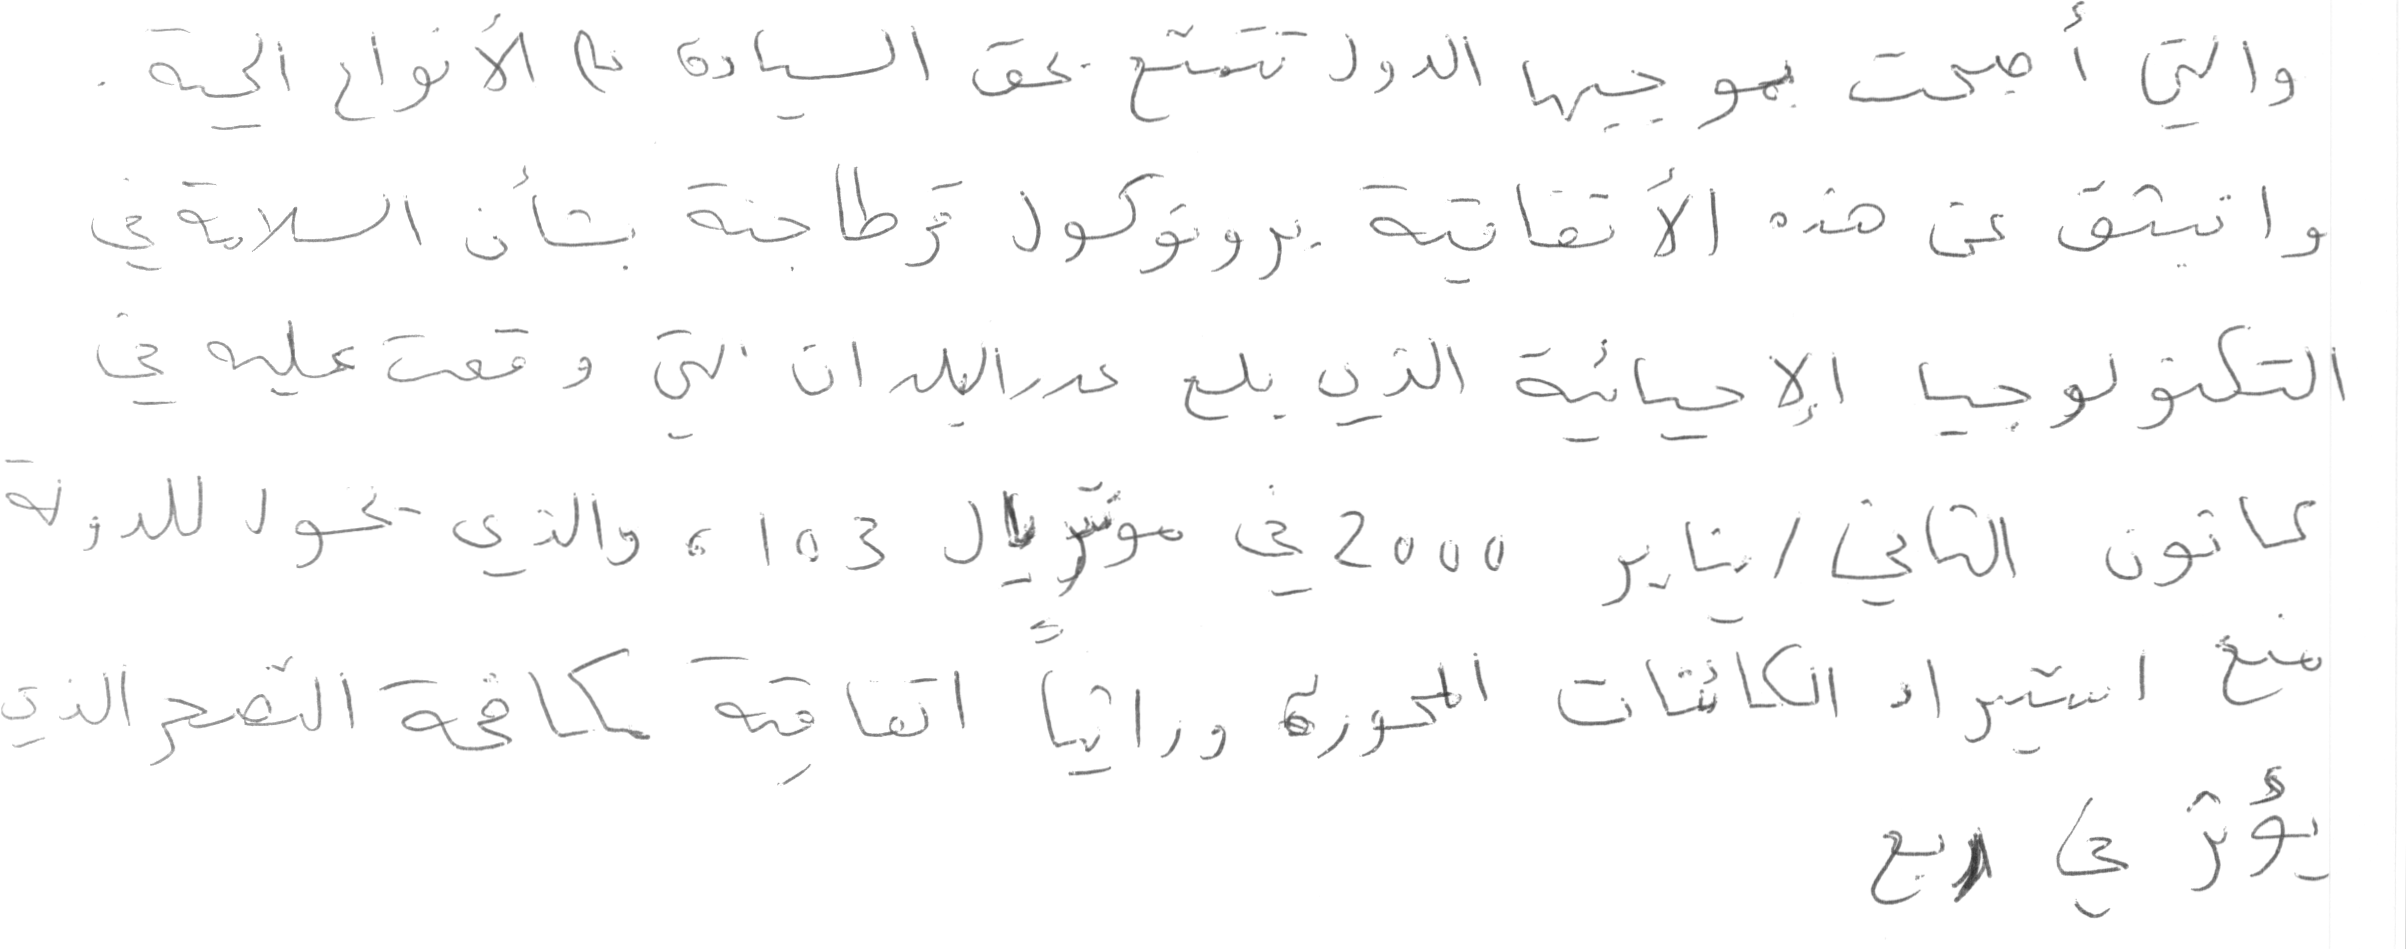 والتي أصبحت بموجبها الدول تتمتع بحق السيادة على الأنواع الحية.
وانبثق عن هذه الأتفاقية بروتوكول قرطاجنة بشأن السلامة في
التكنولوجيا الإحيائية الذي بلغ عدد البلدان التي وقعت عليه في
كانون الثاني/يناير 2000 في مونتريال 103، والذي يخول للدولة
منع استيراد الكائنات المحورة وراثياً اتفاقية مكافحة التصحر الذي
يؤثر في ربع